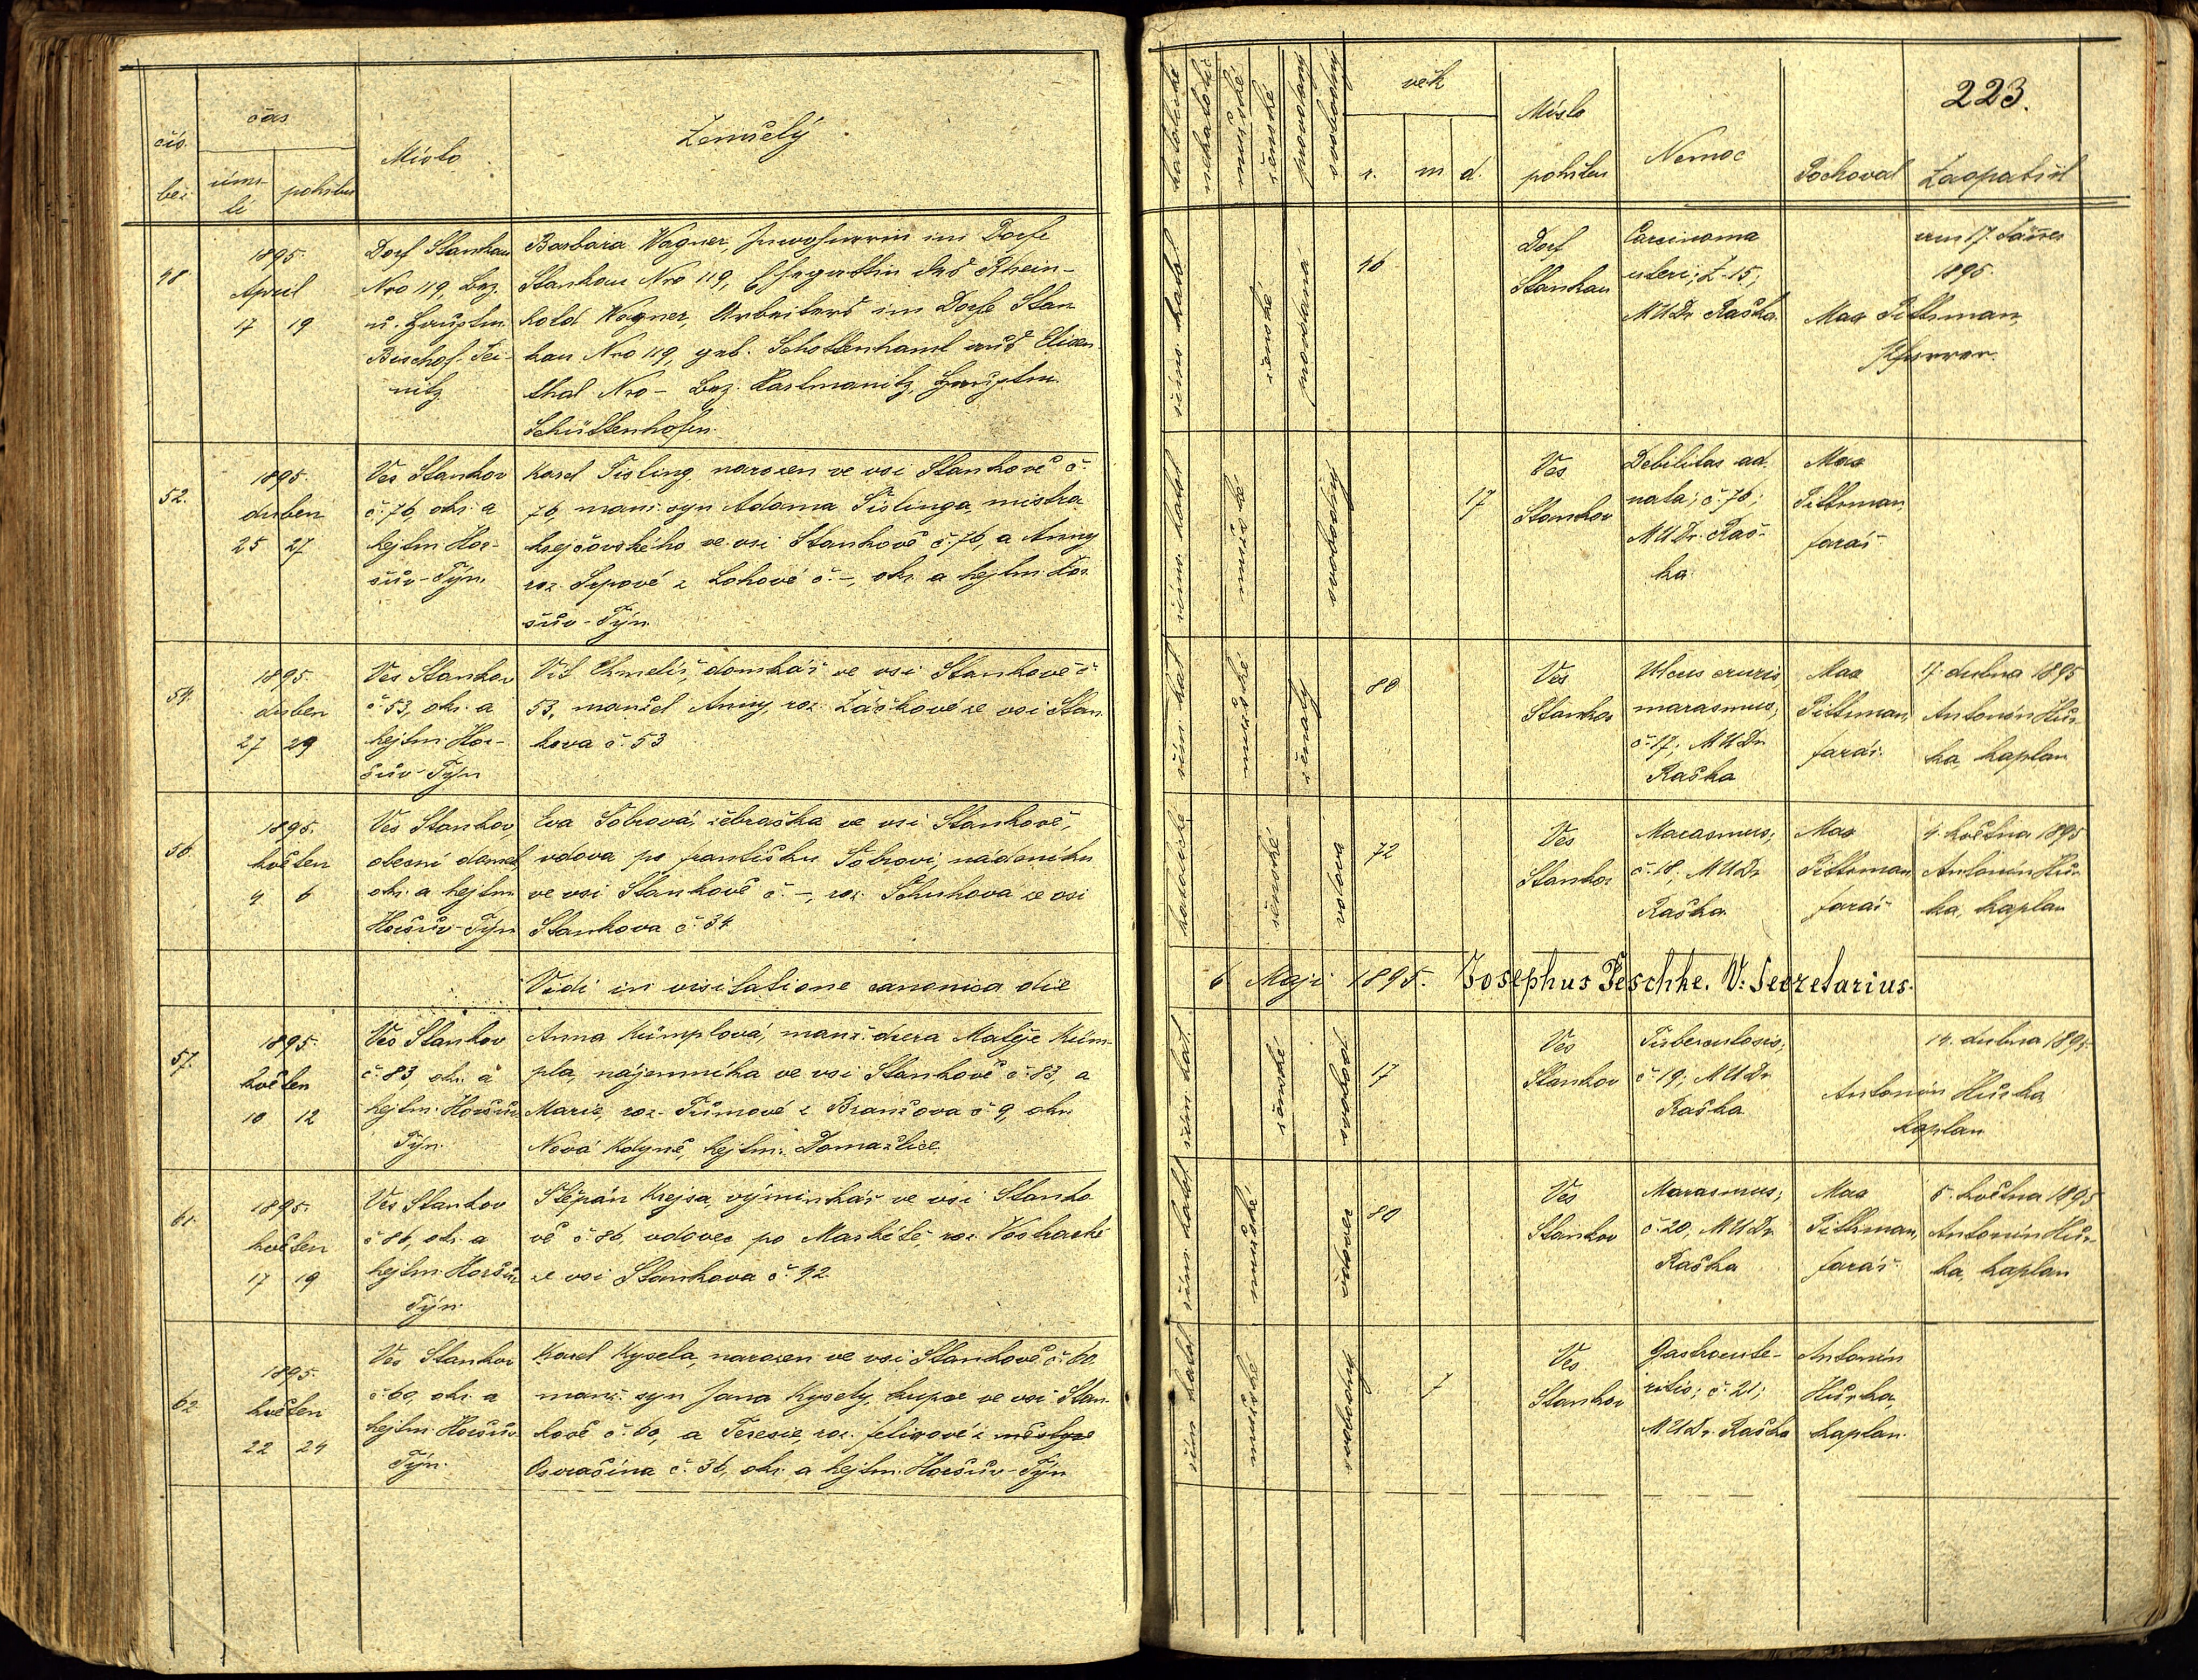 čís.
bež.
čas
úmr-
tí
pohřbu
Místo
Zemřelý
katolické
nekatolic
mužské
ženské
provdaný
svobodný
věk
r.
m
d.
Místo
pohřbu
Nemoc
Pochoval
Zaopatřil
223.
48
1895.
April
17 19
Dorf Stankau
Nro 119, Bez.
u. Hauptm.
Bischof-Tei-
nitz
Barbara Wagner, Inwohnerin im Dorfe
Stankau Nro 119, Ehegattin des Rhein-
hold Wagner, Arbeiters im Dorfe Stan
kau Nro 119, geb. Schottenhaml aus Elisen-
thal Nro - Bez. Hartmanitz, Hauptm.
Schüttenhofen.
řím. katol
ženské
provdaná
46
Dorf
Stankau
Carcinoma
uteri; Z. 15;
MUDr Raška.
am 17. Jänner
1895.
Max Pittrman,
Pfarrer.
52.
1895.
duben
25 27
Ves Stankov
č. 76, okr. a
hejtm. Hor-
šův-Týn.
Karel Tisling, narozen ve vsi Stankově č.
76, manž. syn Adama Tislinga, mistra
krejčovského ve vsi Stankově č. 76, a Anny
roz. Sepové z Lohové č. -, okr. a hejtm. Hor
šův-Týn.
řím. katol
mužské
svobodný
17
Ves
Stankov
Debilitas ad-
nata; č. 76;
MUDr. Raš-
ka.
Max
Pittrman,
farář.
54.
1895.
duben
27 29
Ves Stankov
č. 53, okr. a
hejtm. Hor-
šův-Týn
Vít Chmelíř, domkář ve vsi Stankově č.
53, manžel Anny, roz. Žáčkové ze vsi Stan
kova č. 53
řím. kat
mužské
ženatý
80
Ves
Stankov
Ulcus cruris,
marasmus;
č. 17; MUDr
Raška
Max
Pittrman,
farář.
17. dubna 1895
Antonín Hůr
ka, kaplan
56
1895.
květen
4 6
Ves Stankov,
obecní domek,
okr. a hejtm.
Horšův-Týn
Eva Tobrová, žebračka ve vsi Stankově,
vdova po Františku Tobrovi nádeníku
ve vsi Stankově č. -, roz. Schuhova ze vsi
Stankova č. 34
katolické
ženské
vdova
72
Ves
Stankov
Marasmus;
č. 18; MUDr
Raška.
Max
Pittrman
farář
4. května 1895
Antonín Hůr
ka, kaplan
Vidi in visitatione canonica die
6 Maji 1895. Josephus Peschke. V: Secretarius.
57.
1895.
květen
10 12
Ves Stankov
č. 83, okr. a
hejtm. Horšův
Týn.
Anna Kümplová, manž. dcera Matěje Küm-
pla, nájemníka ve vsi Stankově č. 83, a
Marie, roz. Tůmové z Branšova č. 9, okr.
Nová Kdyně, hejtm. Domažlice.
řím. kat.
ženské
svobod.
17
Ves
Stankov
Tuberculosis;
č. 19; MUDr
Raška
14. dubna 1895.
Antonín Hůrka
kaplan
61.
1895.
květen
17 19
Ves Stankov
č. 86, okr. a
hejtm. Horšův
Týn.
Štěpán Krejsa, výminkář ve vsi Stanko
vě č. 86, vdovec po Markétě, roz. Vostracké
ze vsi Stankova č. 42.
řím. katol
mužské
vdovec
80
Ves
Stankov
Marasmus;
č. 20, MUDr
Raška
Max
Pittrman,
farář.
5. května 1895
Antonín Hůr
ka, kaplan
62
1895.
květen
22 24
Ves Stankov
č. 60, okr. a
hejtm. Horšův
Týn.
Karel Kysela, narozen ve vsi Stankově č. 60.
manž. syn Jana Kysely, kupce ve vsi Stan-
kově č. 60, a Terezie, roz. Felixové z městyse
Osvračína č. 36, okr. a hejtm. Horšův-Týn
řím katol
mužské
svobodný
7
Ves
Stankov
Gastroente-
ritis; č. 21;
MUDr. Raška
Antonín
Hůrka,
kaplan.